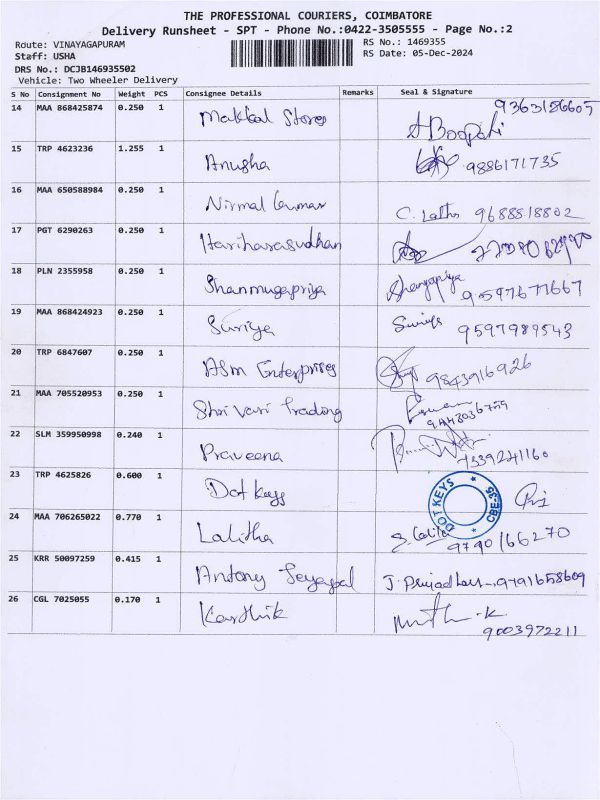 THE PROFESSIONAL COURIERS, COIMBATORE
Delivery Runsheet - SPT - Phone No.:0422-3505555 - Page No.:2
Route: VINAYAGAPURAM RS No.: 1469355
Staff: USHA RS Date: 05-Dec-2024
DRS No.: DCJB146935502
Vehicle: Two Wheeler Delivery
S No Consignment No Weight PCS Consignee Details Remarks Seal & Signature
14 MAA 868425874 0.250 1 Makkal Stores 9363186605
A Boopathi
15 TRP 4623236 1.255 1 Anusha 9886171735
16 MAA 650588984 0.250 1 Nirmal Kumar C. Latha 9688518802
17 PGT 6290263 0.250 1 Hariharasudhan
18 PLN 2355958 0.250 1 Shanmugapriya 9597677667
19 MAA 868424923 0.250 1 Suriya Suriya 9597989543
20 TRP 6847607 0.250 1 ASM Enterprises 9843916926
21 MAA 705520953 0.250 1 Shri Vari Trading
9443036759
22 SLM 359950998 0.240 1 Praveena
7339241160
23 TRP 4625826 0.600 1 Dot Keys DOT KEYS * CBE-35 *
24 MAA 706265022 0.770 1 Lalitha S. Lalitha
9790166270
25 KRR 50097259 0.415 1 Antony Jeyapal 9791658609
26 CGL 7025055 0.170 1 Karthik
9003972211